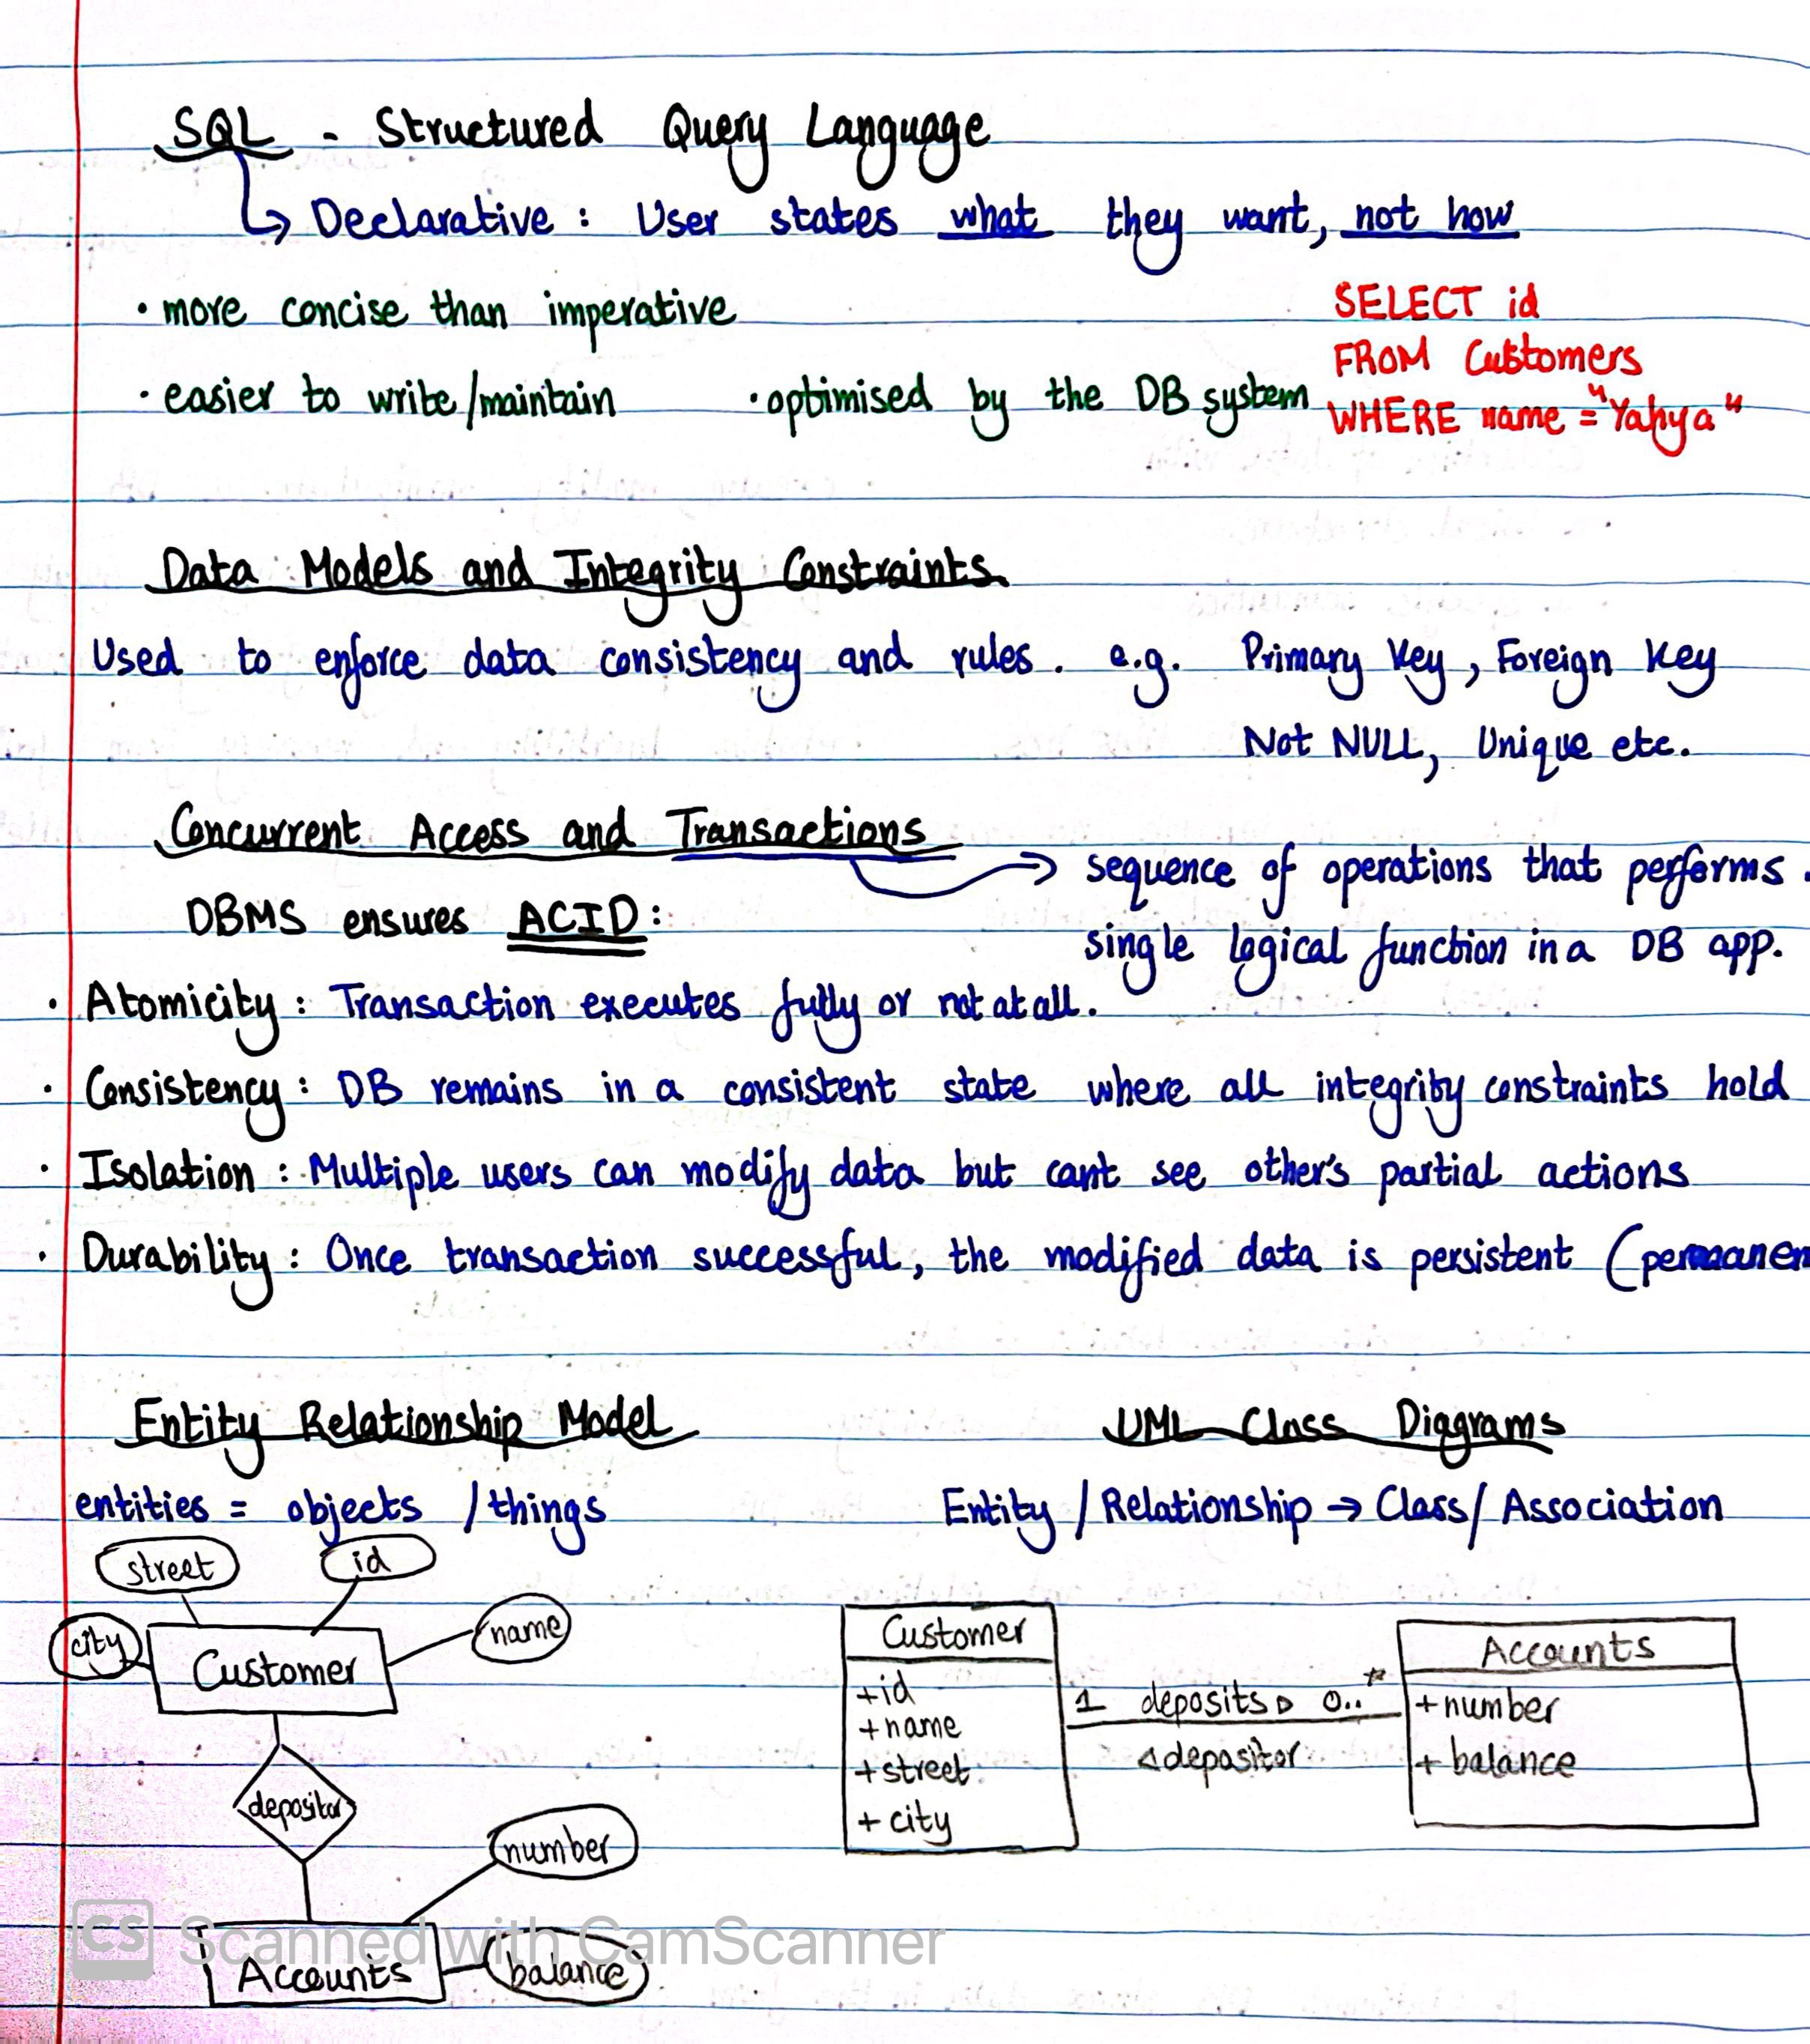 SQL - Structured Query Language
↳ Declarative : User states what they want, not how
• more concise than imperative
SELECT id
FROM Customers
• easier to write/maintain • optimised by the DB system
WHERE name = "Yahya"
Data Models and Integrity Constraints
Used to enforce data consistency and rules. e.g. Primary Key, Foreign Key
Not NULL, Unique etc.
Concurrent Access and Transactions
→ sequence of operations that performs
DBMS ensures ACID:
single logical function in a DB app.
• Atomicity : Transaction executes fully or not at all.
• Consistency : DB remains in a consistent state where all integrity constraints hold
• Isolation : Multiple users can modify data but cant see other's partial actions
• Durability : Once transaction successful, the modified data is persistent (permanen
Entity Relationship Model
UML Class Diagrams
entities = objects / things
Entity / Relationship → Class / Association
street
id
city
name
Customer
depositor
number
Accounts
balance
Customer
+id
+name
+street
+ city
1 deposits ▷ 0..*
◁ depositor
Accounts
+number
+ balance
CS Scanned with CamScanner